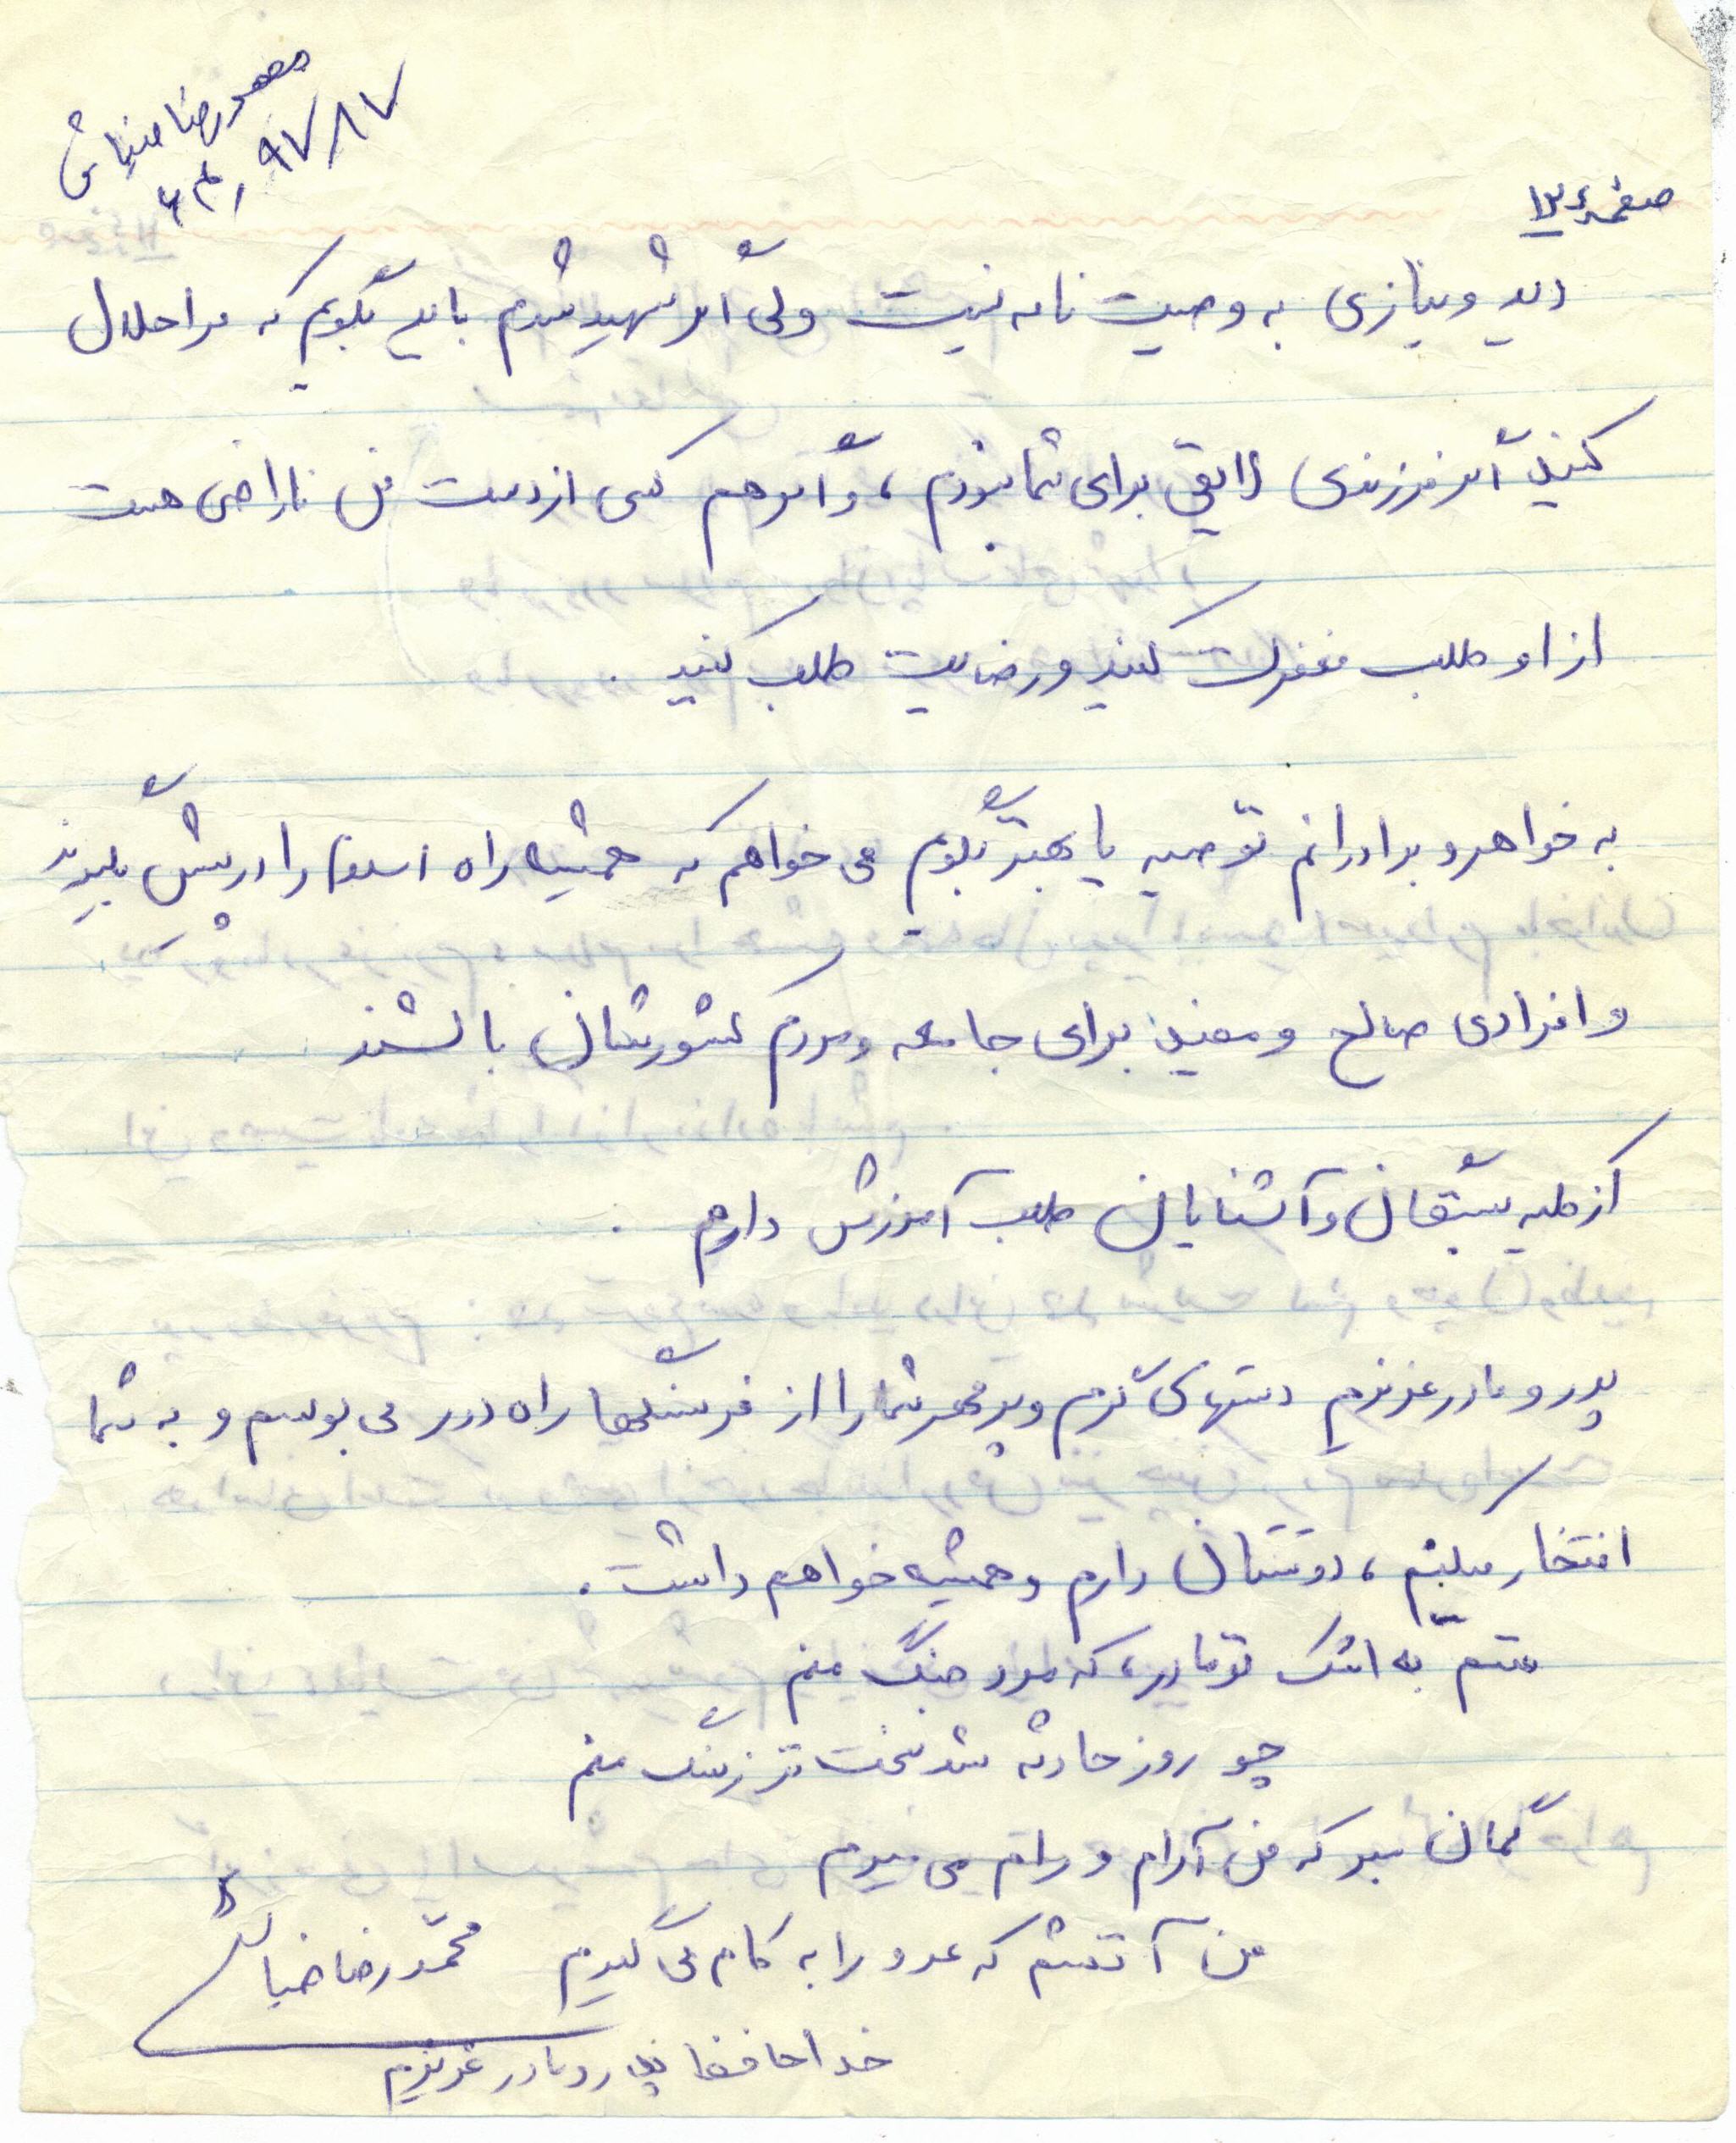 محمدرضا ضیاشی
۹۷/۸۷
صفحه ۱۲
دید و نیازی به وصیت نامه نیست ولی اگر شهید شدم باید بگویم که مرا حلال
کنید اگر فرزندی لایق برای شما نبودم، و اگر هم کسی از دست من ناراضی هست
از او طلب مغفرت کنید و رضایت طلب کنید.
به خواهر و برادرانم توصیه یا بهتر بگویم می خواهم که همیشه راه اسلام را در پیش بگیرند
و افرادی صالح و مفید برای جامعه و مردم کشورشان باشند
از کلیه بستگان و آشنایان طلب آمرزش دارم.
پدر و مادر عزیزم دستهای گرم و پر مهر شما را از فرسنگها راه دور می بوسم و به شما
افتخار میکنم، دوستتان دارم و همیشه خواهم داشت.
قسم به اشک تو مادر، که مرد جنگ منم
چو روز حادثه شد سخت تر ز سنگ منم
گمان مبر که من آرام و رام می میرم
من آتشم که عدو را به کام می گیرم محمّدرضا
خداحافظ پدر و مادر عزیزم